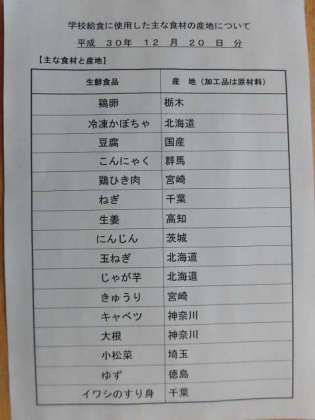 学校給食に使用した主な食材の産地について
平成 30年 12 月 20 日 分
【主な食材と産地】
生鮮食品 産 地（加工品は原材料）
鶏卵 栃木
冷凍かぼちゃ 北海道
豆腐 国産
こんにゃく 群馬
鶏ひき肉 宮崎
ねぎ 千葉
生姜 高知
にんじん 茨城
玉ねぎ 北海道
じゃが芋 北海道
きゅうり 宮崎
キャベツ 神奈川
大根 神奈川
小松菜 埼玉
ゆず 徳島
イワシのすり身 千葉